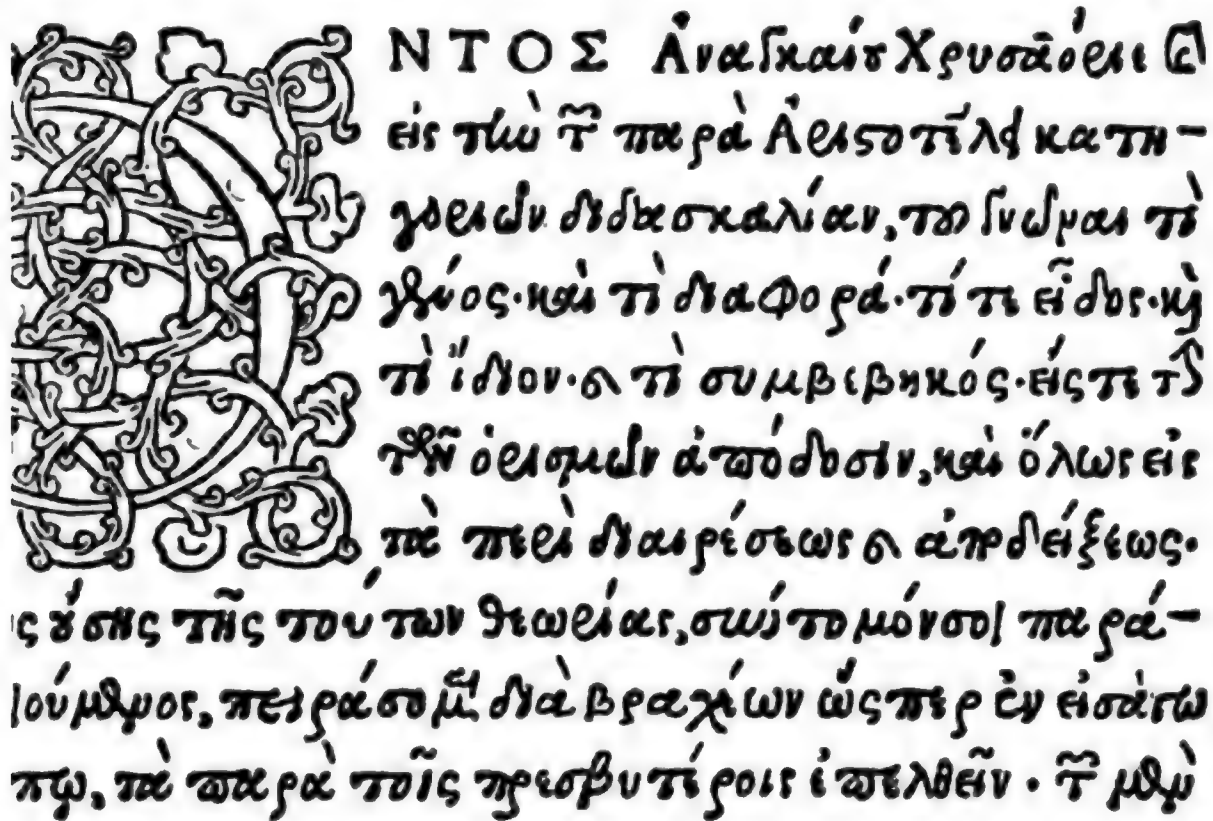 ΝΤΟΣ Ἀναγκαίου Χρυσαόριε καὶ
εἰς τὴν τῶν παρὰ Ἀριστοτέλει κατη-
γοριῶν διδασκαλίαν, τοῦ γνῶναι τί
γένος· καὶ τί διαφορά· τί τε εἶδος· καὶ
τί ἴδιον· καὶ τί συμβεβηκός· εἴς τε τὴν
τῶν ὁρισμῶν ἀπόδοσιν, καὶ ὅλως εἰς
τὰ περὶ διαιρέσεως καὶ ἀποδείξεως·
ς οὔσης τῆς τούτων θεωρίας, σύντομόν σοι παρά-
ιούμενος, πειράσομαι διὰ βραχέων ὥσπερ ἐν εἰσαγω
πῳ, τὰ παρὰ τοῖς πρεσβυτέροις ἐπελθεῖν· τῶν μὲν